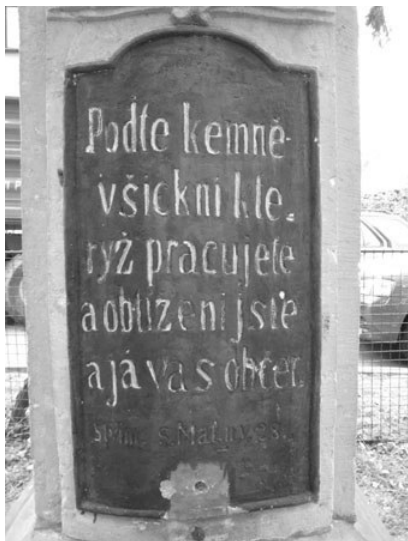 Podte kemně
všickni kte.
ryž pracujete
a obtiženi jste
a já vas občer.
s. Mat.